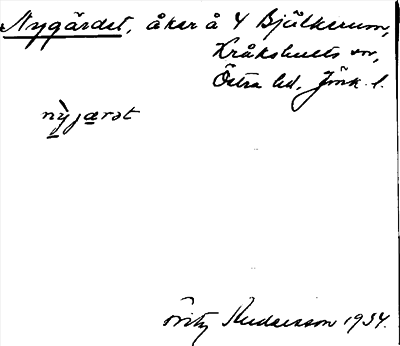 Nygärdet, åker å 4 Bjälkerum,
Kråkshults sn,
Östra hd, Jönk. l.
nỳjærət
Fritz 1934.